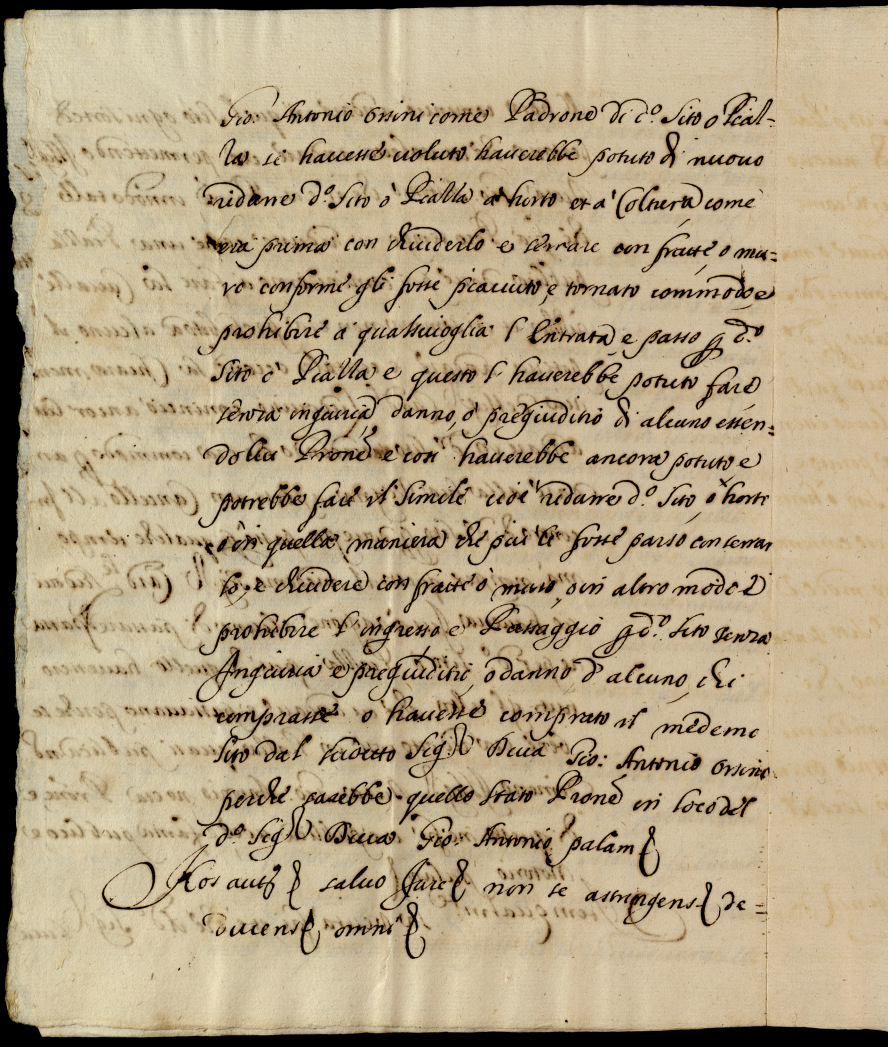 Gio: Antonio Orsini come Padrone di d.º Sito ò Pial-
la se hauesse uoluto hauerebbe potuto di nuouo
ridurre d.º Sito ò Pialla à horto et à Coltura come
era prima con chiuderlo e serrare con fratte o mu-
ro conforme gli fosse piaciuto, e tornato commodo, e
prohibire à qualsiuoglia l'Entrata e passo p d.º
Sito è Pialla, e questo l'hauerebbe potuto fare
senza ingiuria danno, ò pregiuditio di alcuno essen-
do lui Prone e così hauerebbe ancora potuto e
potrebbe fare il simile cioè ridurre d.º Sito ò horto
ò in quella maniera che più li fosse parso con serrar
lo, e chiudere con fratte ò muro, o in altro modo è
prohibire l'ingresso e Passaggio p d.º Sito senza
Ingiuria e pregiuditio, o danno d'alcuno, che
comprasse o hauesse comprato il medemo
sito dal sudetto Sig.r Duca Gio: Antonio Orsino
perche sarebbe quello stato Prone in loco del
d.º Sig.r Duca Gio: Antonio palam
Hos aut saluo Jure non se astringens de-
ducens omni